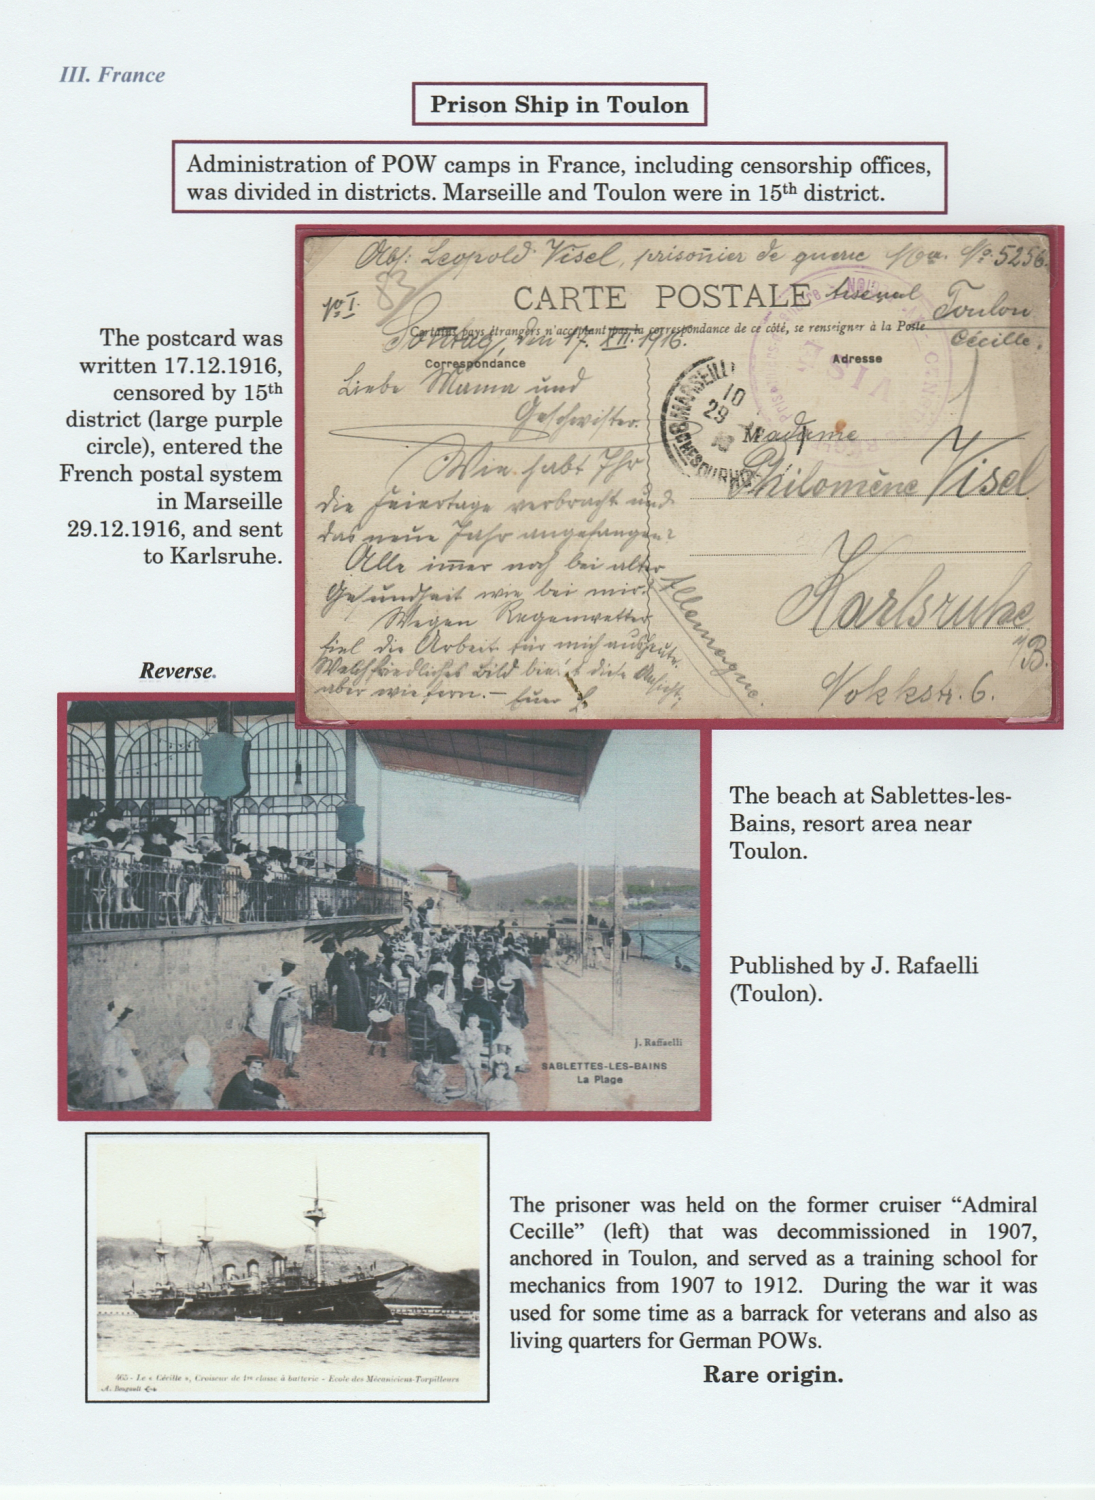 III. France
Prison Ship in Toulon
Administration of POW camps in France, including censorship offices,
was divided in districts. Marseille and Toulon were in 15th district.
The postcard was
written 17.12.1916,
censored by 15th
district (large purple
circle), entered the
French postal system
in Marseille
29.12.1916, and sent
to Karlsruhe.
Reverse.
Abs: Leopold Visel, prisonier de guerre No. 5256
83
No I.
CARTE POSTALE
Arsenal Toulon
Certains pays étrangers n'acceptent pas la correspondance de ce côté, se renseigner à la Poste
Cécille.
Sonntag, den 17. XII. 1916.
Correspondance
Adresse
VISÉ
MARSEILLE
10
29
Liebe Mama und
Geschwister.
Wie habt Ihr
die Feiertage verbracht und
das neue Jahr angefangen?
Alle immer noch bei alter
Gesundheit wie bei mir.
Wegen Regenwetter
fiel die Arbeit für mich aus heute.
Welch friedliches Bild diese Ansicht,
aber wie fern. – Euer L.
Madame
Philomène Visel
Karlsruhe
i/B.
Allemagne.
6.
The beach at Sablettes-les-
Bains, resort area near
Toulon.
Published by J. Rafaelli
(Toulon).
J. Raffaelli
SABLETTES-LES-BAINS
La Plage
465 - Le « Cécille », Croiseur de 1re classe à batterie - Ecole des Mécaniciens-Torpilleurs
A. Bougault
The prisoner was held on the former cruiser “Admiral
Cecille” (left) that was decommissioned in 1907,
anchored in Toulon, and served as a training school for
mechanics from 1907 to 1912. During the war it was
used for some time as a barrack for veterans and also as
living quarters for German POWs.
Rare origin.